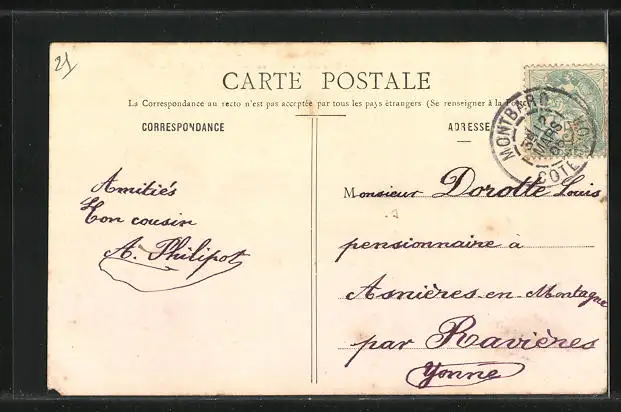 21
CARTE POSTALE
La Correspondance au recto n'est pas acceptée par tous les pays étrangers (Se renseigner à la Poste)
CORRESPONDANCE
ADRESSE
MONTBARD
COTE
Amitiés
Ton cousin
A. Philipot
Monsieur Dorotte Louis
pensionnaire à
Asnières-en-Montagne
par Ravières
Yonne